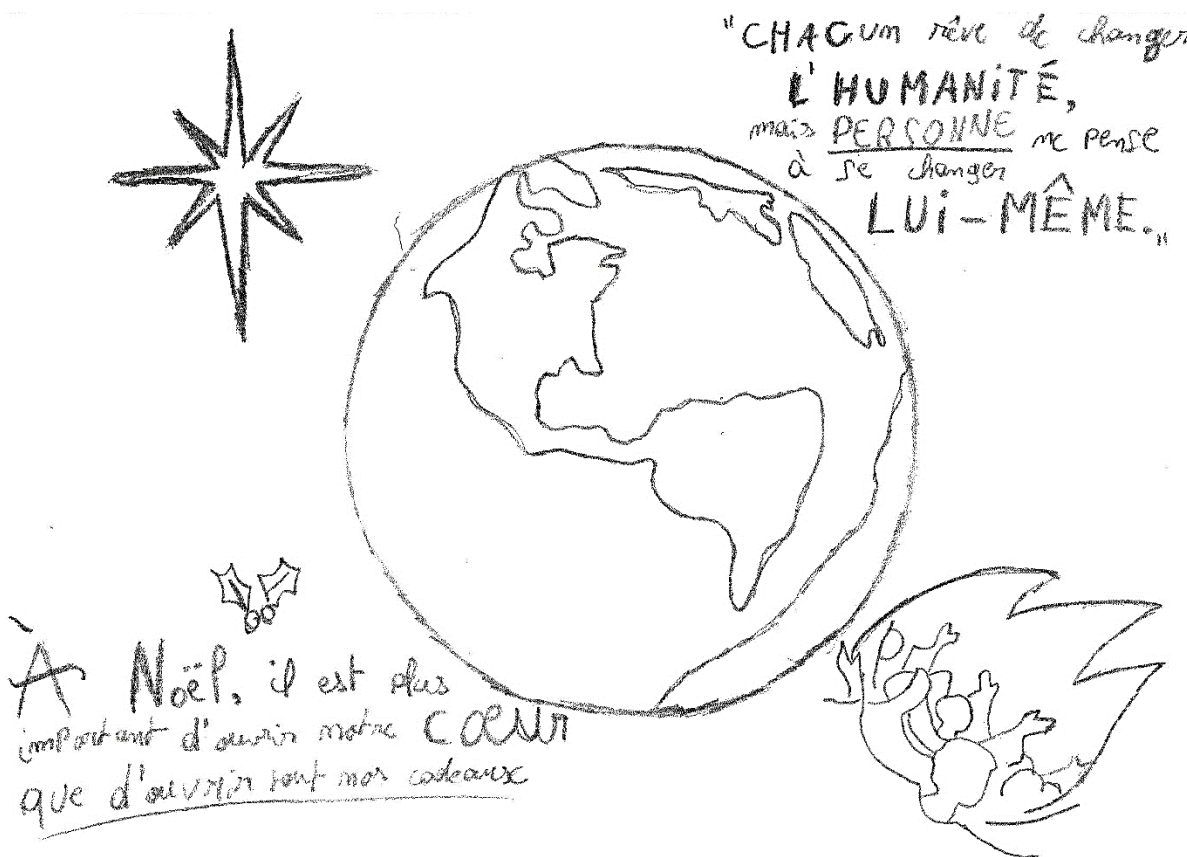 "CHACUN rêve de changer
L'HUMANiTÉ,
mais PERSONNE ne pense
à se changer
LUi-MÊME."
À Noël, il est plus
important d'ouvrir notre CœUr
que d'ouvrir tout nos cadeaux